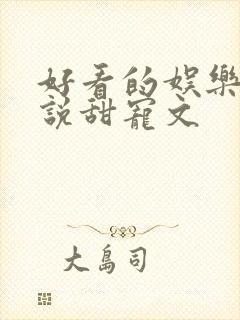 好看的娛樂
說甜寵文
大島司